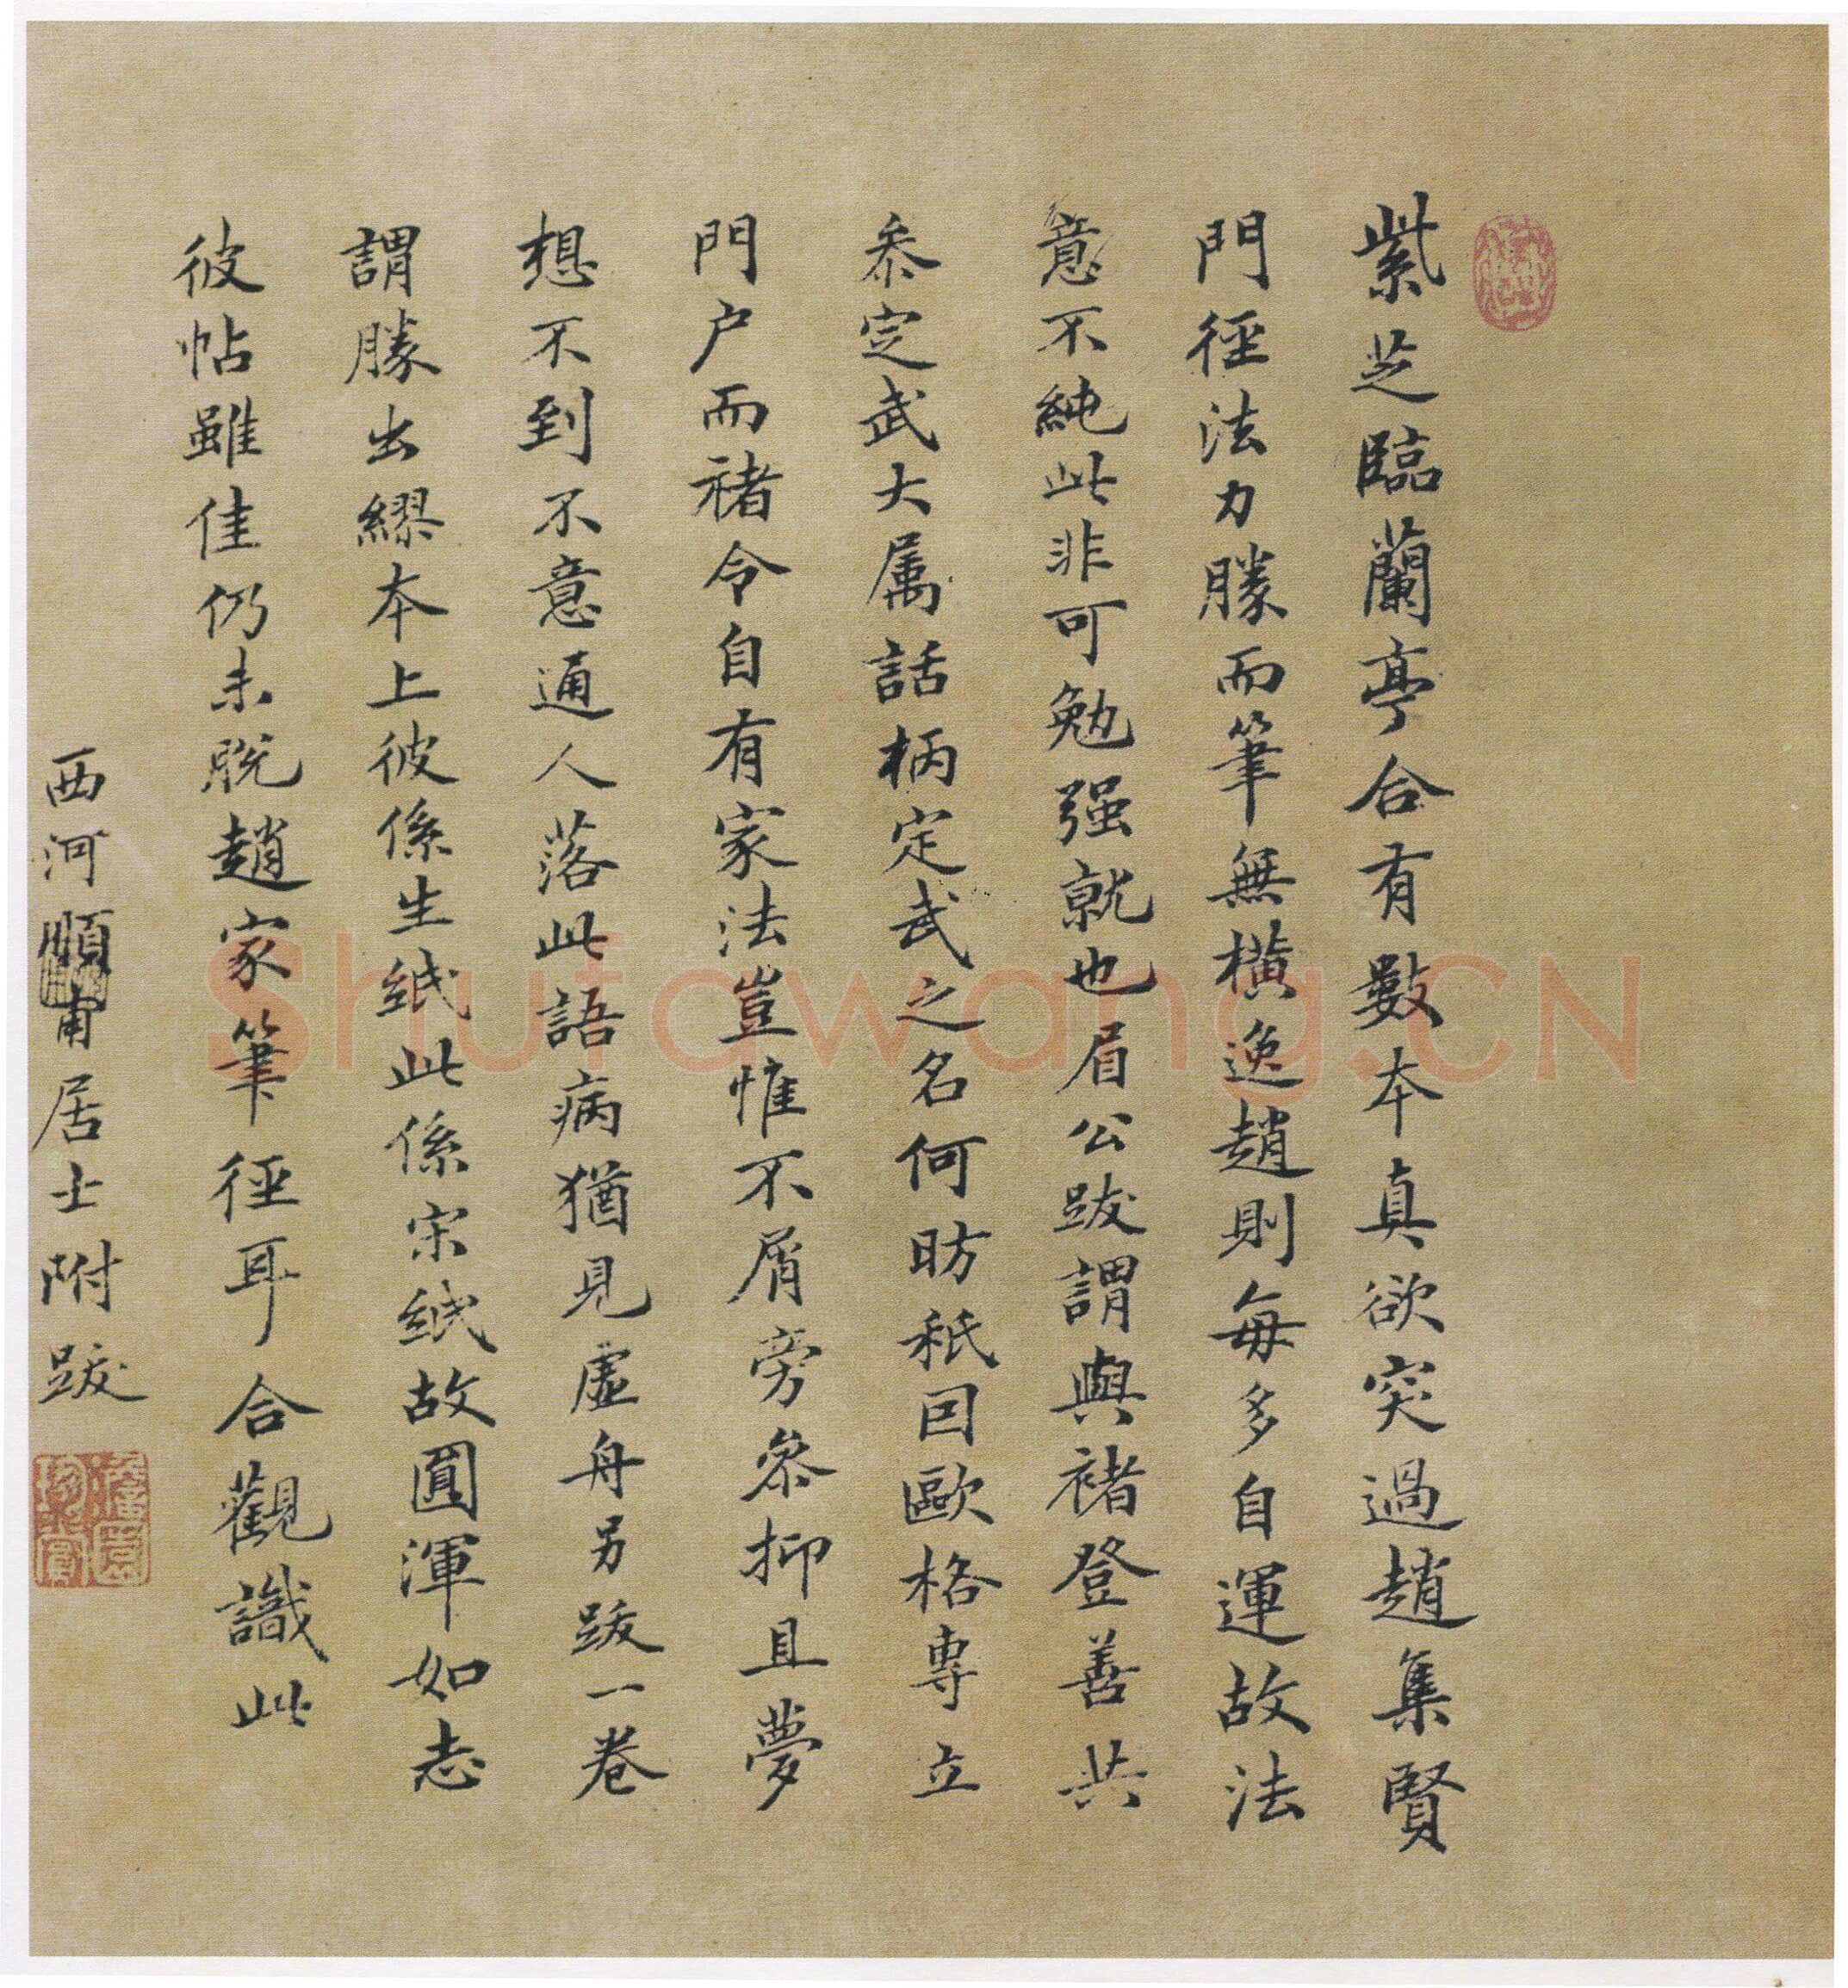 紫芝臨蘭亭合有數本真欲突過趙集賢
門徑法力勝而筆無橫逸趙則每多自運故法
意不純此非可勉强就也眉公跋謂與褚登善共
叅定武大属話柄定武之名何昉秖因歐格專立
門户而褚令自有家法豈惟不屑旁叅抑且夢
想不到不意通人落此語病猶見虛舟另跋一卷
謂勝出繆本上彼係生紙此係宋紙故圓渾如志
彼帖雖佳仍未脱趙家筆徑耳合觀識此
西河順甫居士附跋
Shufawang.CN